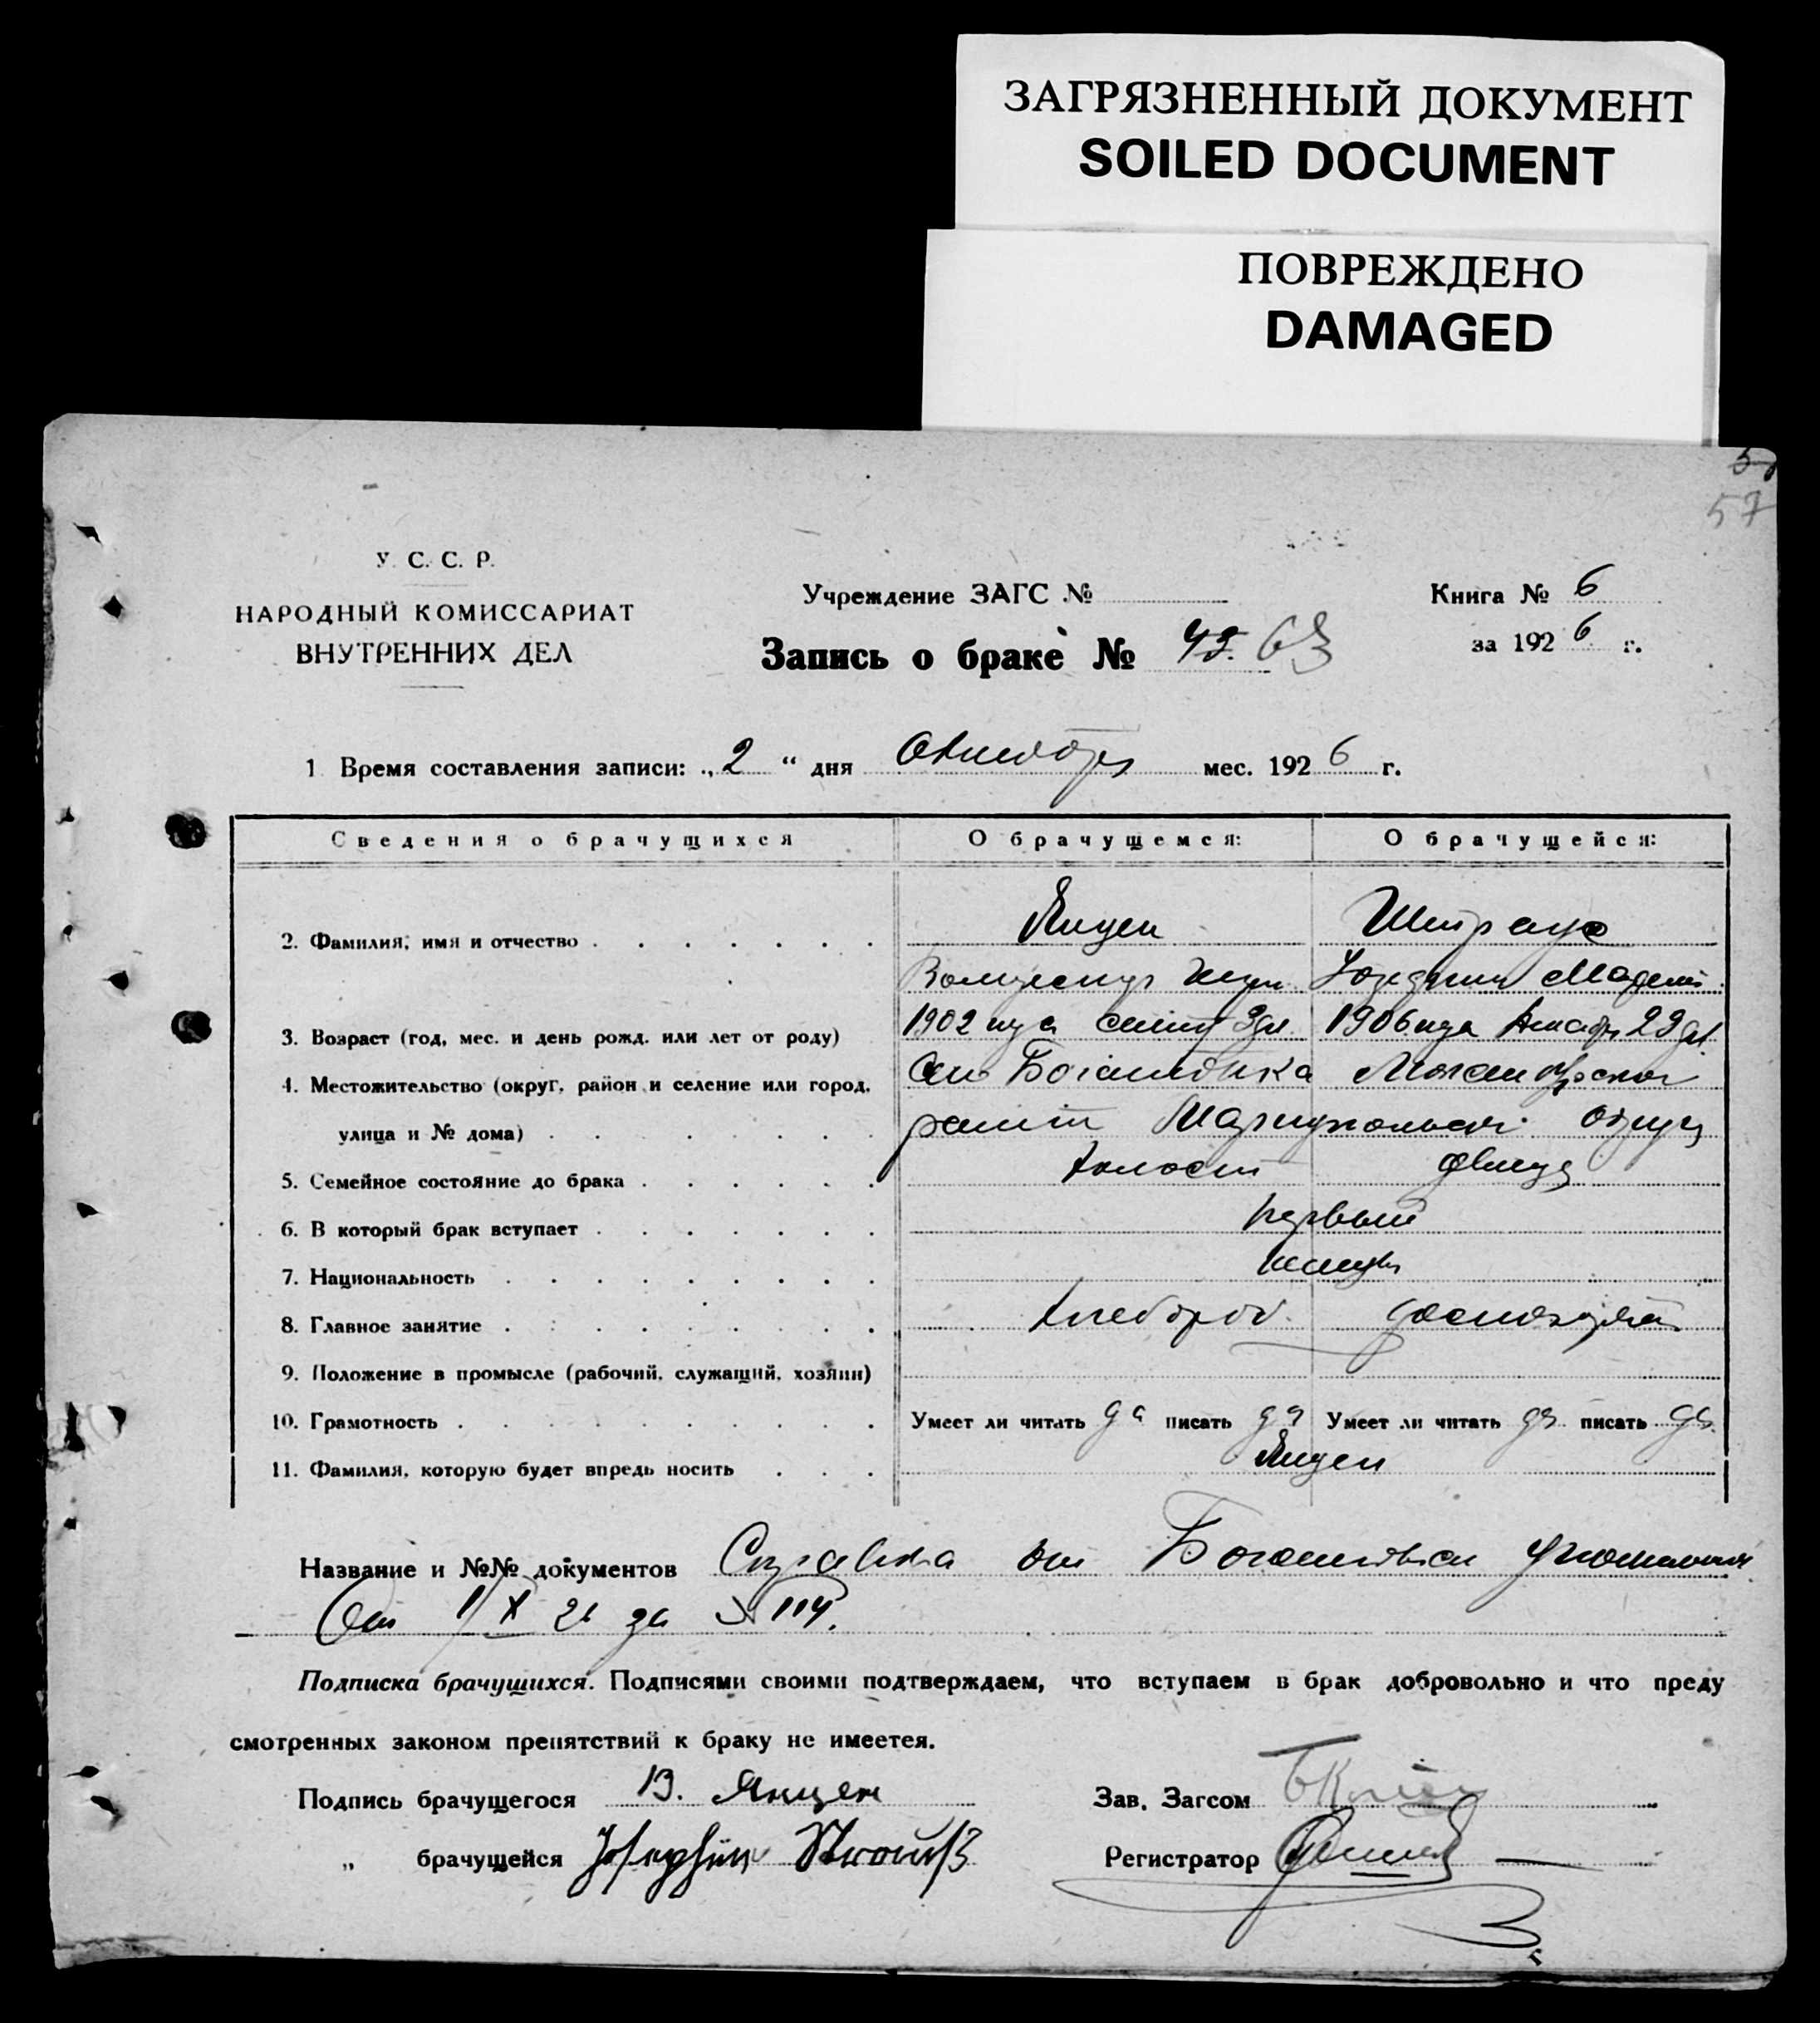 ЗАГРЯЗНЕННЫЙ ДОКУМЕНТ
SOILED DOCUMENT
ПОВРЕЖДЕНО
DAMAGED
57
У. С. С. Р.
НАРОДНЫЙ КОМИССАРИАТ
ВНУТРЕННИХ ДЕЛ
Учреждение ЗАГС №
Запись о браке № 63
Книга № 6
за 1926 г.
1. Время составления записи: „2“ дня Октября мес. 1926 г.
Сведения о брачущихся О брачущемся: О брачущейся:
2. Фамилия, имя и отчество Янцен Штраус
3. Возраст (год, мес. и день рожд. или лет от роду) 1902 1906 года 29
4. Местожительство (округ, район и селение или город, Село
улица и № дома) Мариупольск. округа
5. Семейное состояние до брака холост девица
6. В который брак вступает первый
7. Национальность немцы
8. Главное занятие хлебороб
9. Положение в промысле (рабочий, служащий, хозяин)
10. Грамотность Умеет ли читать да писать да Умеет ли читать да писать да
11. Фамилия, которую будет впредь носить Янцен
Название и №№ документов Справка от
От 1/X 26 за № 114.
Подписка брачущихся. Подписями своими подтверждаем, что вступаем в брак добровольно и что преду
смотренных законом препятствий к браку не имеется.
Подпись брачущегося В. Янцен
Зав. Загсом
„ брачущейся Josephine Strauß
Регистратор